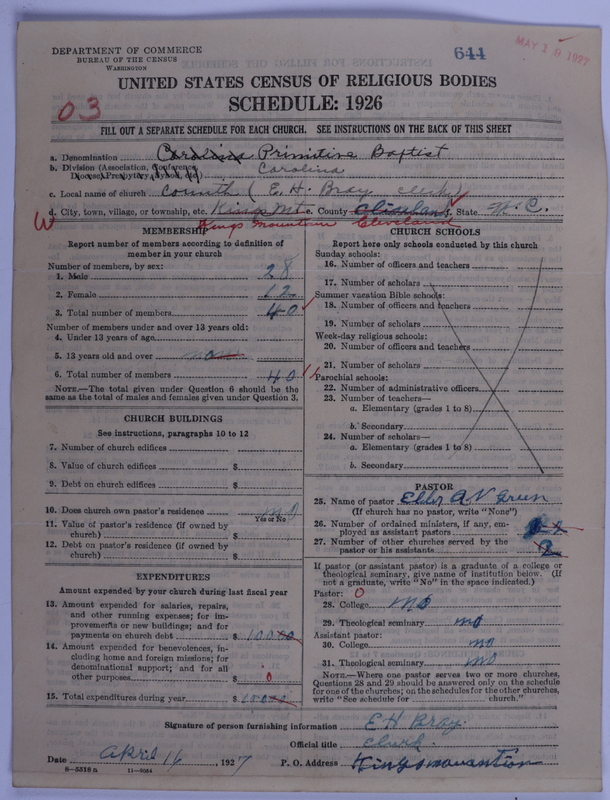 DEPARTMENT OF COMMERCE
BUREAU OF THE CENSUS
WASHINGTON
644
MAY 19 1927
UNITED STATES CENSUS OF RELIGIOUS BODIES
SCHEDULE: 1926
03
FILL OUT A SEPARATE SCHEDULE FOR EACH CHURCH. SEE INSTRUCTIONS ON THE BACK OF THIS SHEET
a. Denomination Carolina Primitive Baptist
b. Division (Association, Conference, Diocese, Presbytery, Synod, etc.) Carolina
c. Local name of church (E. H. Bray clerk)
d. City, town, village, or township, etc. Kings Mt e. County Cleveland f. State N. C.
W Kings Mountain Cleveland
MEMBERSHIP
Report number of members according to definition of
member in your church
Number of members, by sex:
1. Male 28
2. Female 12
3. Total number of members 40
Number of members under and over 13 years old:
4. Under 13 years of age
5. 13 years old and over
6. Total number of members 40
NOTE.—The total given under Question 6 should be the
same as the total of males and females given under Question 3.
CHURCH BUILDINGS
See instructions, paragraphs 10 to 12
7. Number of church edifices
8. Value of church edifices $
9. Debt on church edifices $
10. Does church own pastor's residence no
Yes or No
11. Value of pastor's residence (if owned by
church) $
12. Debt on pastor's residence (if owned by
church) $
EXPENDITURES
Amount expended by your church during last fiscal year
13. Amount expended for salaries, repairs,
and other running expenses; for im-
provements or new buildings; and for
payments on church debt $
14. Amount expended for benevolences, in-
cluding home and foreign missions; for
denominational support; and for all
other purposes $ 0
15. Total expenditures during year $
CHURCH SCHOOLS
Report here only schools conducted by this church
Sunday schools:
16. Number of officers and teachers
17. Number of scholars
Summer vacation Bible schools:
18. Number of officers and teachers
19. Number of scholars
Week-day religious schools:
20. Number of officers and teachers
21. Number of scholars
Parochial schools:
22. Number of administrative officers
23. Number of teachers—
a. Elementary (grades 1 to 8)
b. Secondary
24. Number of scholars—
a. Elementary (grades 1 to 8)
b. Secondary
PASTOR
25. Name of pastor Elder A V Green
(If church has no pastor, write "None")
26. Number of ordained ministers, if any, em-
ployed as assistant pastors
27. Number of other churches served by the
pastor or his assistants 2
If pastor (or assistant pastor) is a graduate of a college or
theological seminary, give name of institution below. (If
not a graduate, write "No" in the space indicated.)
Pastor: 0
28. College no
29. Theological seminary no
Assistant pastor:
30. College no
31. Theological seminary no
NOTE.—Where one pastor serves two or more churches,
Questions 28 and 29 should be answered only on the schedule
for one of the churches; on the schedules for the other churches,
write "See schedule for church."
Signature of person furnishing information E H Bray
Official title clerk
Date April 16, 1927 P. O. Address Kingsmountion
8—5318 a 11—9054